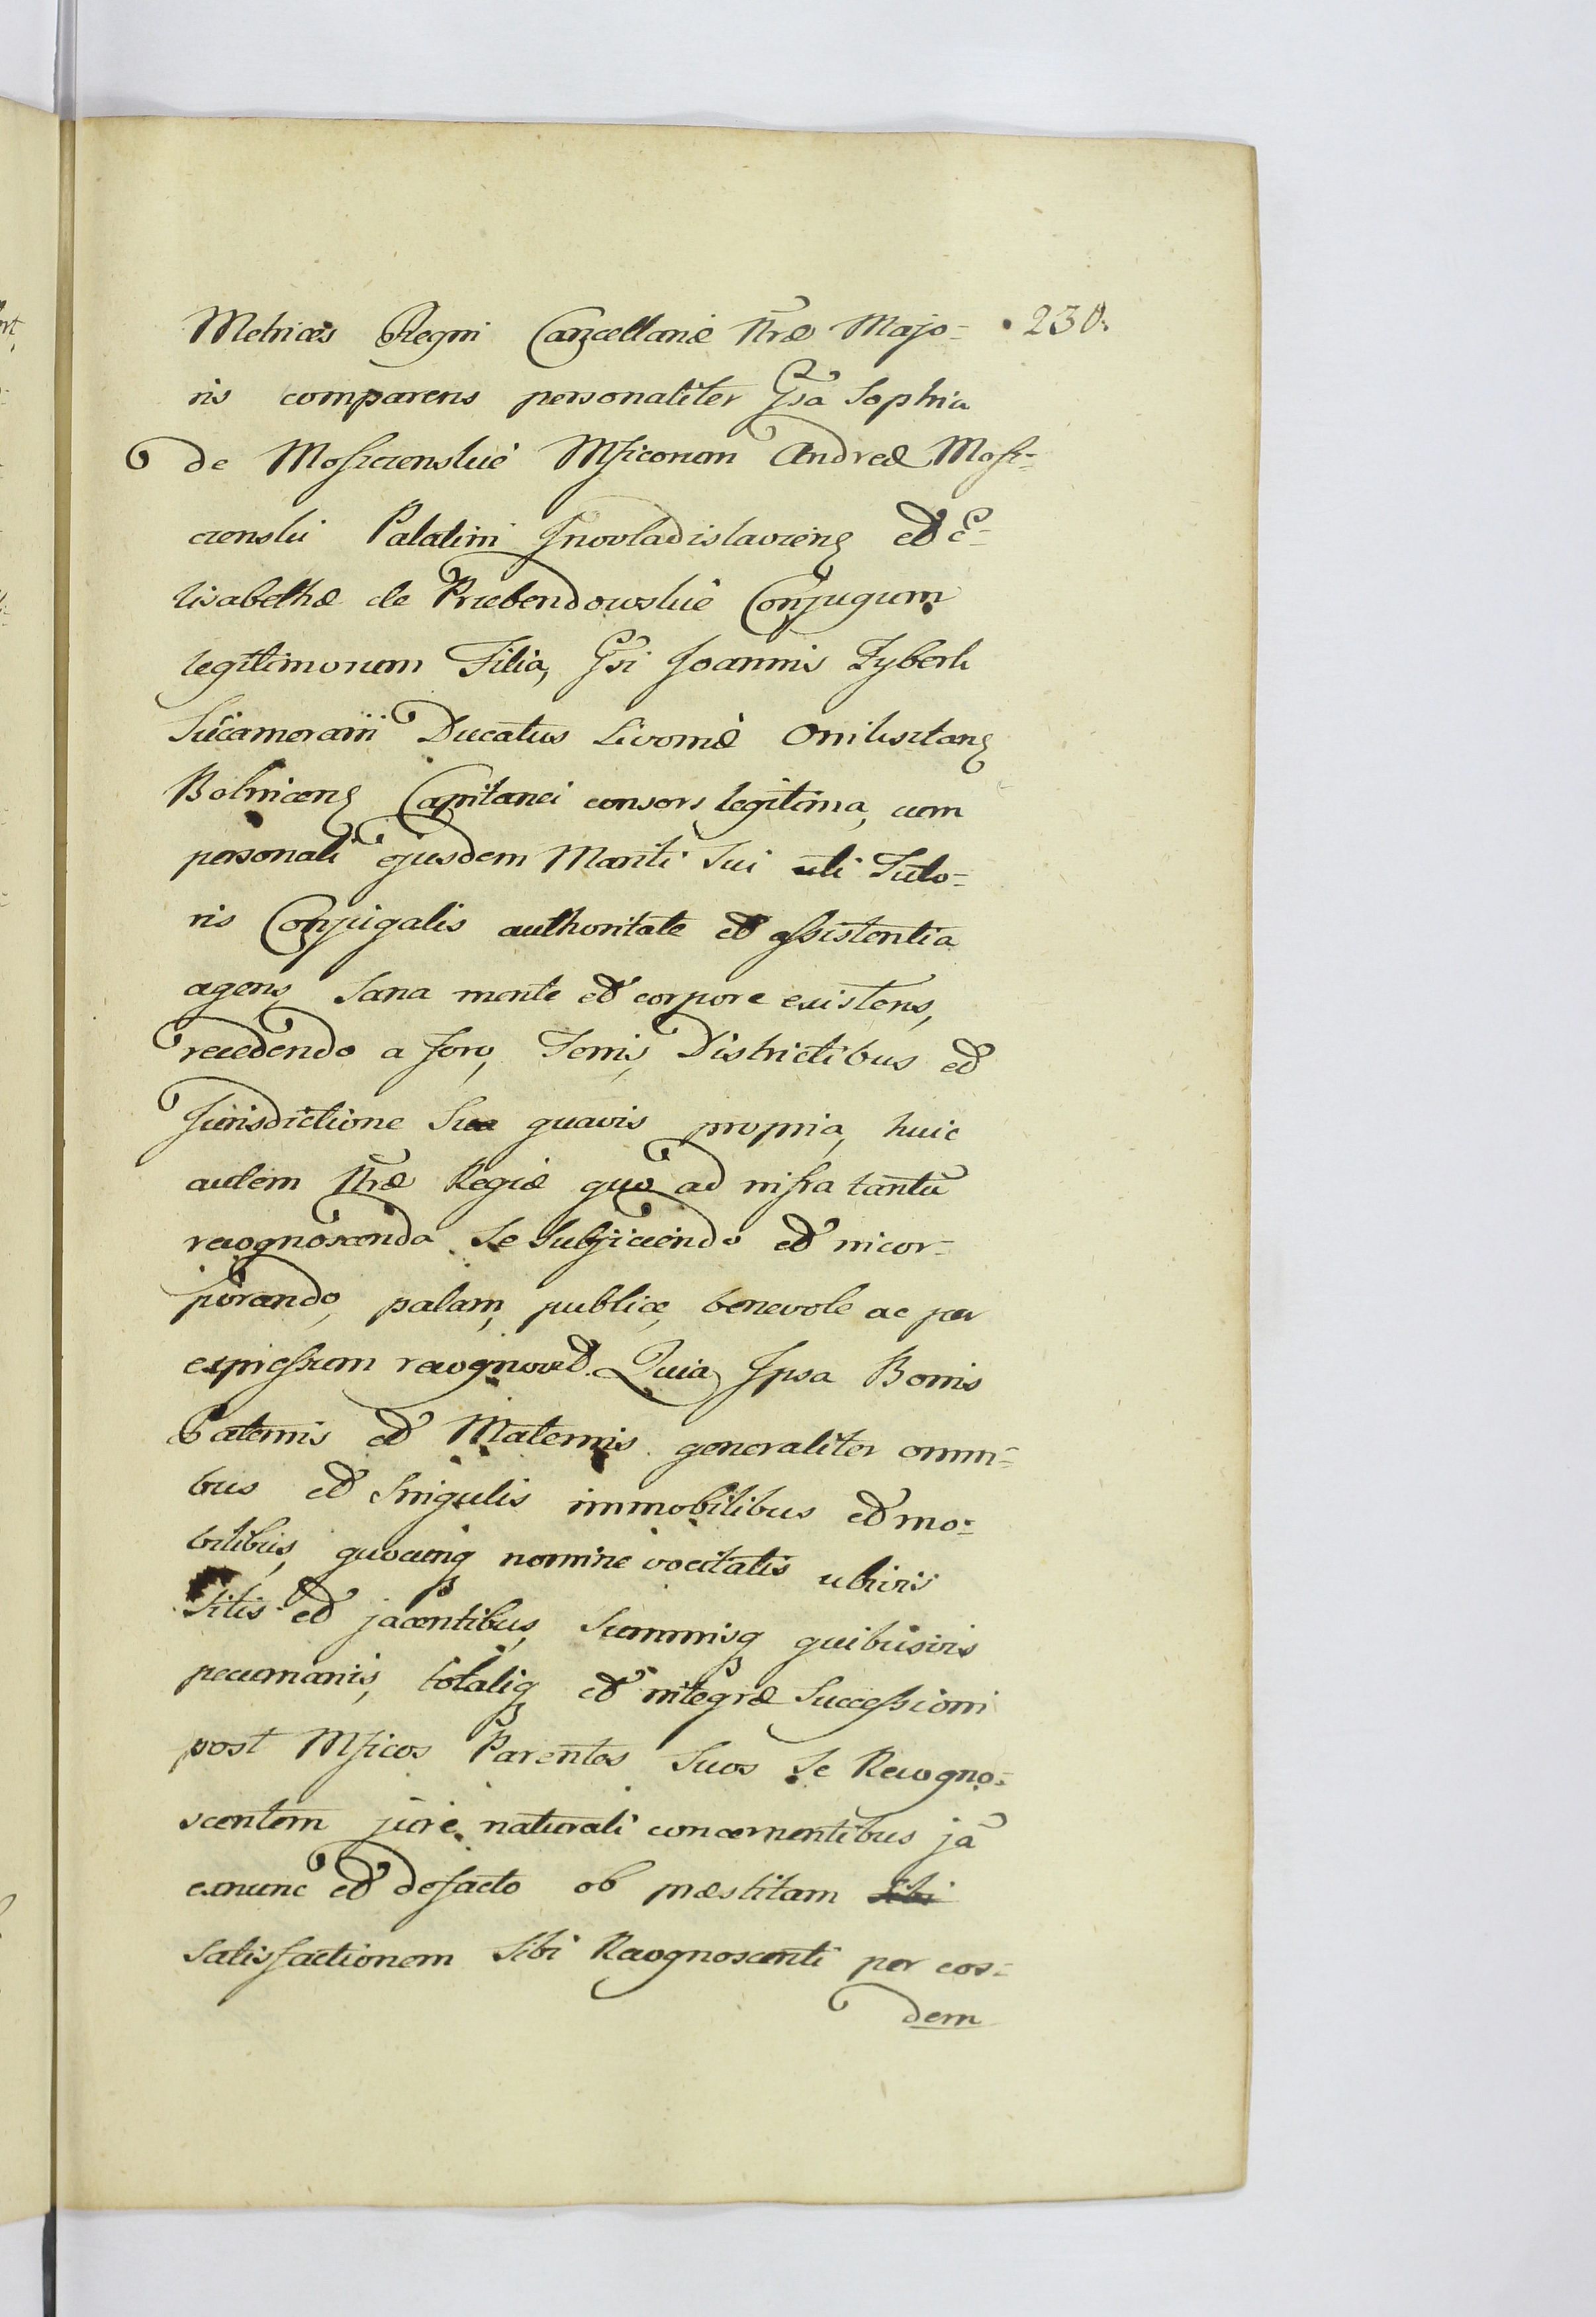 Metrices Regni Cancellariæ Nrae Majo= 230.
ris comparens personaliter Gsa Sophia
de Moszczenskie Mficorum Andreæ Mosz=
czenski Palatini Inowladislavien et E=
lisabethæ de Przebendowskie Conjugum
legitimorum Filia, Gsi Joannis Zyberk
Succamerarii Ducatus Livoniæ
Bolnicen Capitanei consors legitima, cum
personali ejusdem Mariti Sui uti Tuto=
ris Conjugalis authoritate et assistentia
agens, Sana mente et corpore existens,
recedendo a foro, Terris, Districtibus et
Jurisdictione Sua quavis propria, huic
autem Nræ Regiæ quo ad infra tantu
recognoscenda Se Subjiciendo et incor=
porando, palam, publice, benevole ac per
expressum recognovit. Quia Ipsa Bonis
Paternis et Maternis generaliter omni=
bus et Singulis immobilibus et mo=
bilibus, quocunq nomine vocitatis ubivis
Sitis et jacentibus, Summisq quibusvis
pecuniariis, totaliq et integræ Successioni
post Mficos Parentes Suos Se Recogno=
scentem jure naturali concernentibus ja
exnunc et defacto ob præstitam Sibi
Satisfactionem Sibi Recognoscenti per eos=
dem